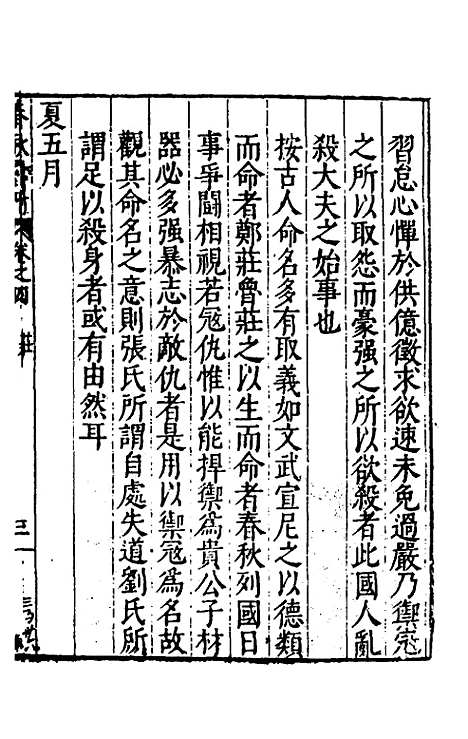 習怠心憚於供億徵求欲速未免過嚴乃禦寇
之所以取怨而豪强之所以欲殺者此國人亂
殺大夫之始事也
按古人命名多有取義如文武宣尼之以德類
而命者鄭莊魯莊之以生而命者春秋列國日
事爭鬪相視若冦仇惟以能捍禦為貴公子材
器必多强暴志於敵仇者是用以禦冦爲名故
觀其命名之意則張氏所謂自處失道劉氏所
謂足以殺身者或有由然耳
夏五月
春秋
卷之四
莊
三